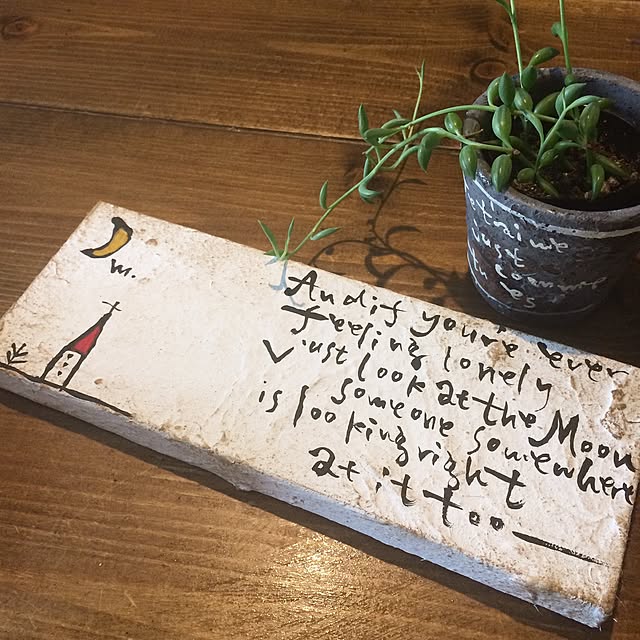 m.
And if you're ever
feeling lonely
Just look at the Moon
someone somewhere
is looking right
at it too
just